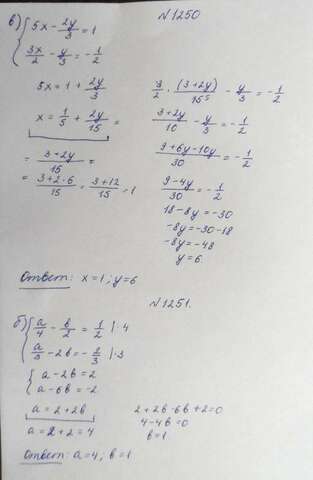 №1250
в) { 5x - 2y/3 = 1
3x/2 - y/3 = -1/2
5x = 1 + 2y/3
x = 1/5 + 2y/15 =
= (3+2y)/15 =
= (3+2·6)/15 = (3+12)/15 = 1
3/2 · (3+2y)/15 5 - y/3 = -1/2
(3+2y)/10 - y/3 = -1/2
(9+6y-10y)/30 = -1/2
(9-4y)/30 = -1/2
18-8y = -30
-8y = -30-18
-8y = -48
y = 6
Ответ: x=1; y=6
№1251.
б) { a/4 - b/2 = 1/2 | ·4
a/3 - 2b = -2/3 | ·3
{ a - 2b = 2
a - 6b = -2
a = 2+2b
a = 2+2 = 4
2+2b-6b+2=0
4-4b=0
b=1
Ответ: a=4; b=1